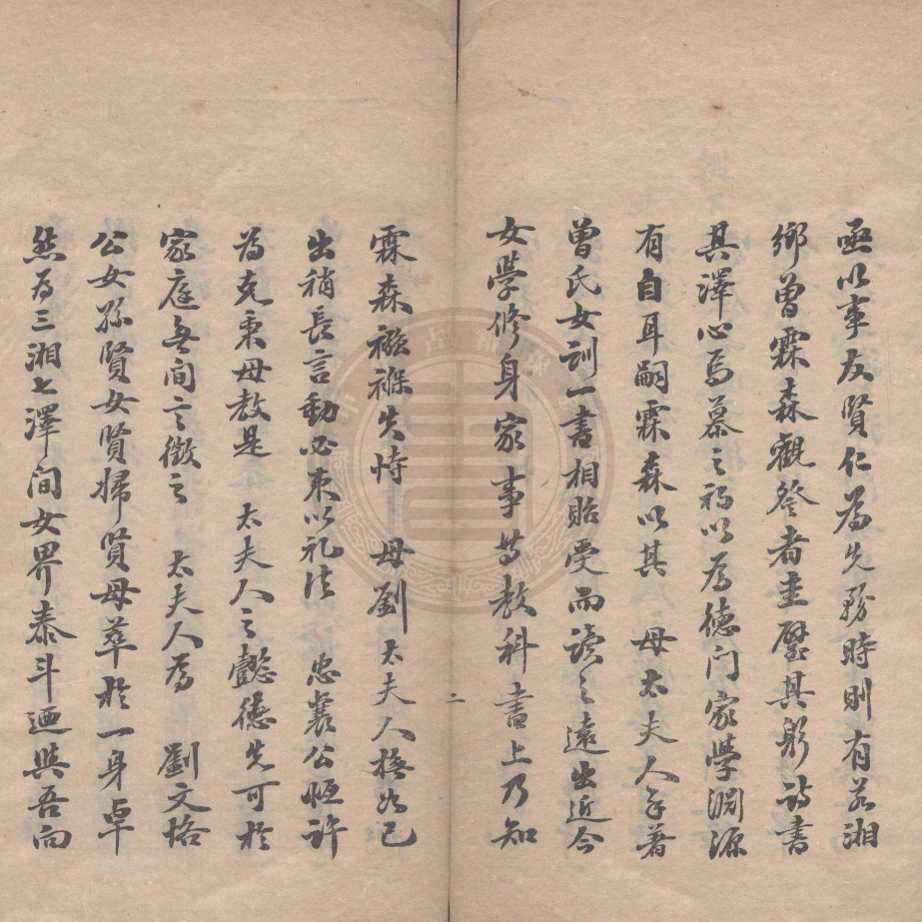 亟以事友賢仁為先務時則有若湘
鄉曾霖森觀詧者圭璧其躬詩書
其澤心焉慕之初以為德门家學淵源
有自耳嗣霖森以其 母太夫人手著
曾氏女訓一書相貽受而读之遠出近今
女學修身家事等教科書上乃知
二
霖森襁褓失恃 母劉太夫人撫如己
出稍長言動必束以礼法 忠襄公恒许
为克秉母教是 太夫人之懿德先可於
家庭無间言徵之 太夫人為 劉文恪
公女孫賢女賢婦賢母萃於一身卓
然为三湘七澤间女界泰斗迺與吾向